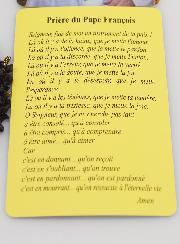 Prière du Pape François
Seigneur, fais de moi un instrument de ta paix !
Là où il y a de la haine, que je mette l'amour.
Là où il y a l'offense, que je mette le pardon.
Là où il y a la discorde, que je mette l'union.
Là où il y a l'erreur, que je mette la vérité.
Là où il y a le doute, que je mette la foi.
Là où il y a le désespoir, que je mette
l'espérance.
Là où il y a les ténèbres, que je mette ta lumière.
Là où il y a la tristesse, que je mette la joie.
O Seigneur, que je ne cherche pas tant
à être consolé... qu'à consoler
à être compris... qu'à comprendre
à être aimé... qu'à aimer
Car
c'est en donnant... qu'on reçoit
c'est en s'oubliant... qu'on trouve
c'est en pardonnant... qu'on est pardonné
c'est en mourant... qu'on ressuscite à l'éternelle vie
Amen